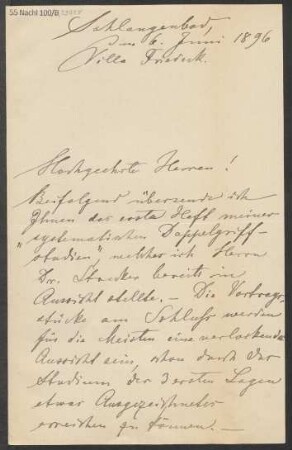 55 Nachl 100/B
Schlangenbad,
den 6. Juni 1896
Villa Friedeck.
Hochgeehrte Herren!
Beifolgend übersende ich
Ihnen das erste Heft meiner
„systematischen Doppelgriff-
studien", welches ich Herrn
Dr. Strecker bereits in
Aussicht stellte. – Die Vortrags-
stücke am Schluss werden
für die Meisten eine verlockende
Aussicht sein, schon durch das
Studium der 3 ersten Lagen
etwas Ausgezeichnetes
erreichen zu können. –